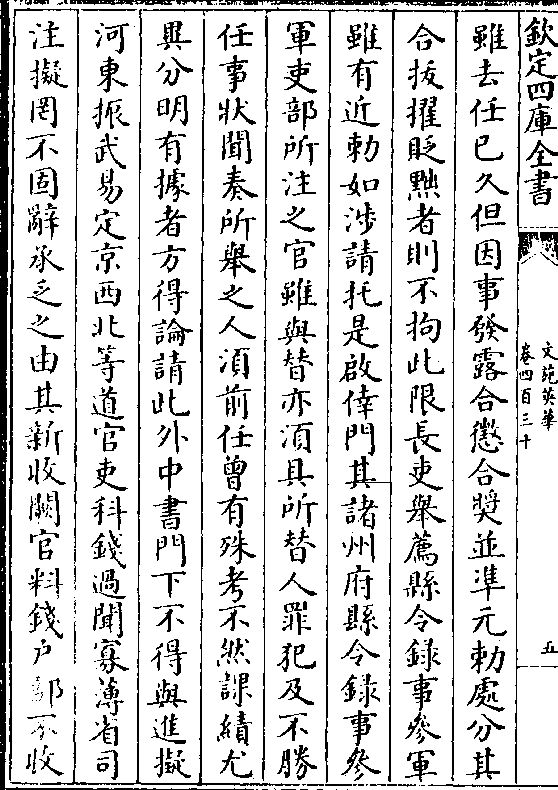 欽定四庫全書
文苑英華
卷四百三十
五
雖去任已久但因事發露合懲合奨並準元勅處分其
合拔擢貶黜者則不拘此限長吏舉薦縣令録事參軍
雖有近勅如涉請托是啟倖門其諸州府縣令録事參
軍吏部所注之官雖與替亦湏具所替人罪犯及不勝
任事狀聞奏所舉之人湏前任曾有殊考不然課績尤
異分明有據者方得論請此外中書門下不得與進擬
河東振武易定京西北等道官吏科錢過聞寡薄省司
注擬罔不固辭承乏之由其新收闕官料錢户部不收